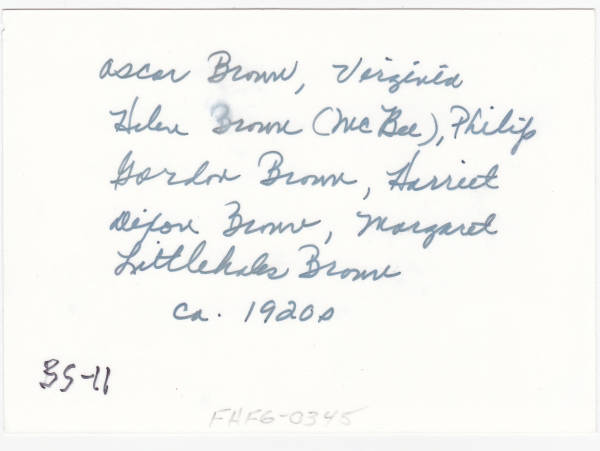 Oscar Brown, Virginia
Helen Brown (McBee), Philip
Gordon Brown, Harriet
Dixon Brown, Margaret
Littlehales Brown
ca. 1920s
BS-11
FHFG-0345